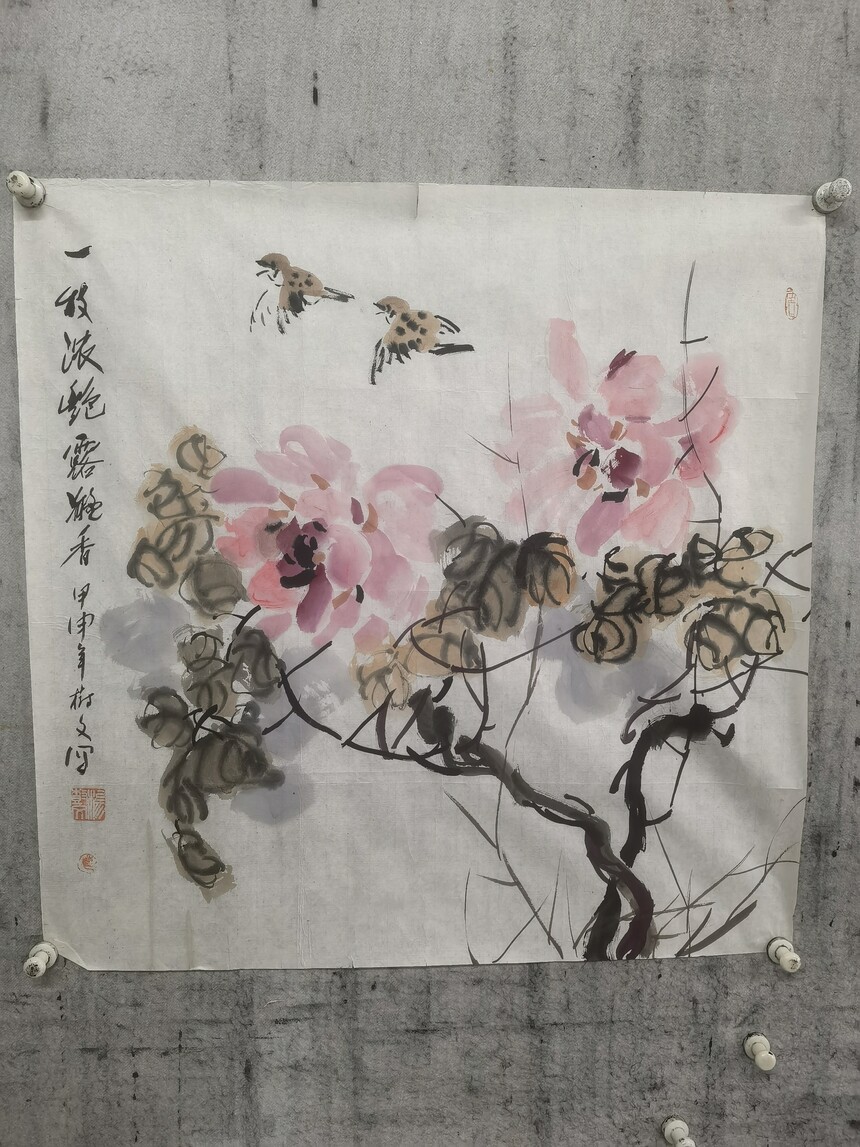 一枝浓艳露凝香 甲申年树文写